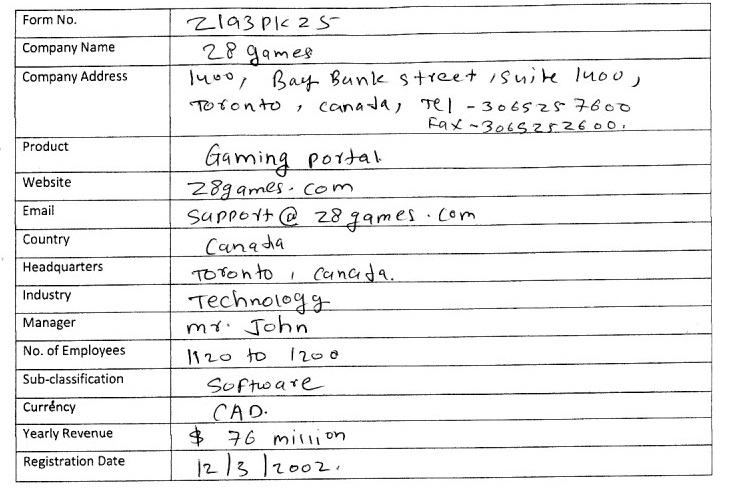 Form No. 2193PK25
Company Name 28 games
Company Address 1400, Bay Bunk street, suite 1400,
Toronto, canada, Tel - 3065257600
Fax - 3065252600.
Product Gaming portal
Website 28games.com
Email support@28games.com
Country Canada
Headquarters Toronto, canada.
Industry Technology
Manager mr. John
No. of Employees 1120 to 1200
Sub-classification Software
Currency CAD.
Yearly Revenue $ 76 million
Registration Date 12/3/2002.